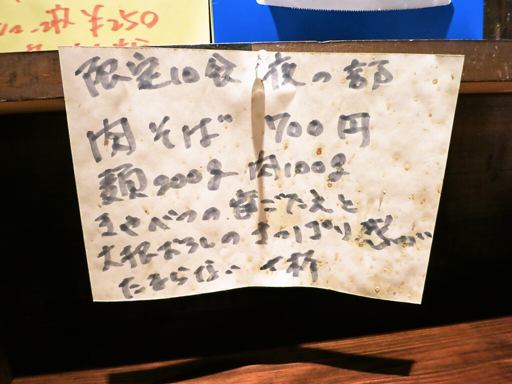 2枚 ¥250
限定10食 夜の部
肉そば 700円
麺200g 肉100g
キャベツの歯ごたえと
大根おろしのさっぱり感が
たまらない一杯